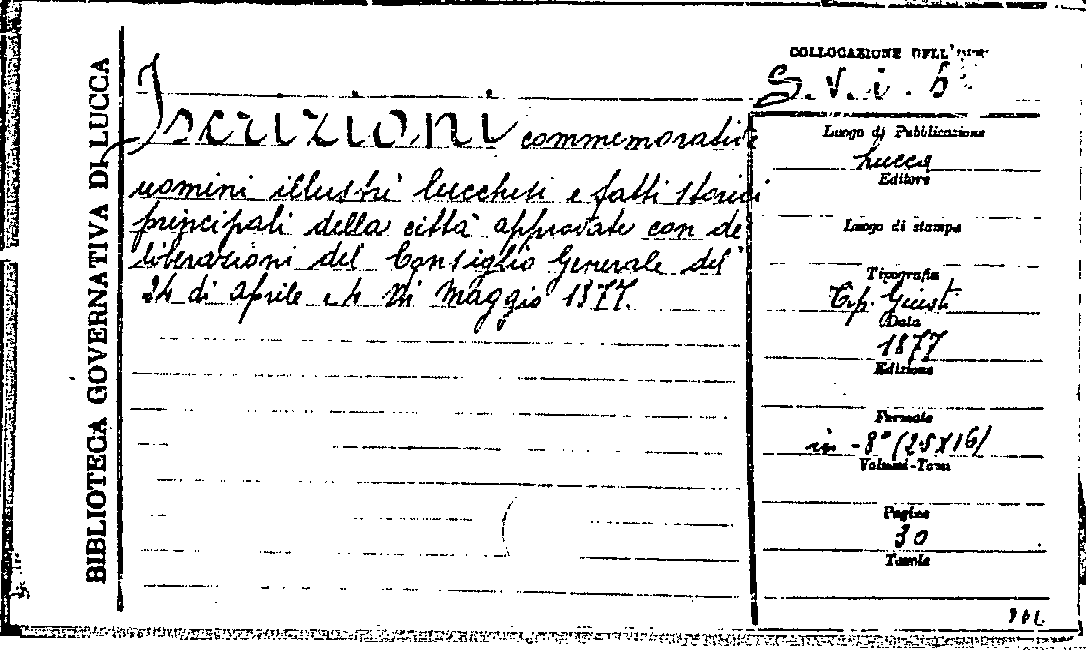 BIBLIOTECA GOVERNATIVA DI LUCCA
Iscrizioni commemorative
uomini illustri lucchesi e fatti storici
principali della città approvate con de
liberazioni del Consiglio Generale del
24 di Aprile e 4 di Maggio 1877.
COLLOCAZIONE
S. V. i. b
Luogo di Pubblicazione
Lucca
Editore
Luogo di stampa
Tipografia
Tip. Giusti
Data
1877
Edizione
Formato
in -8° (25X16)
Volumi-Tomi
Pagine
30
Tavole